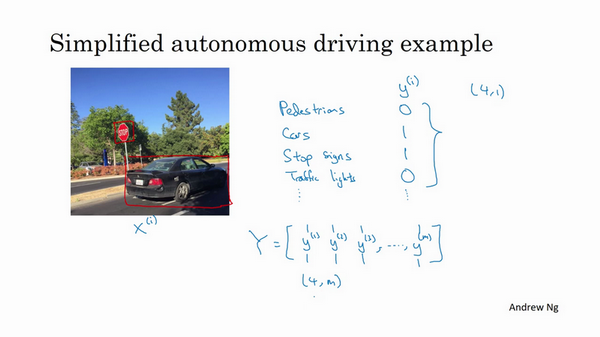 Simplified autonomous driving example
STOP
x^(i)
y^(i)
(4,1)
Pedestrians 0
Cars 1
Stop signs 1
Traffic lights 0
⋮ ⋮
Y = [ y^(1) y^(2) y^(3) , ...., y^(m) ]
(4, m)
Andrew Ng